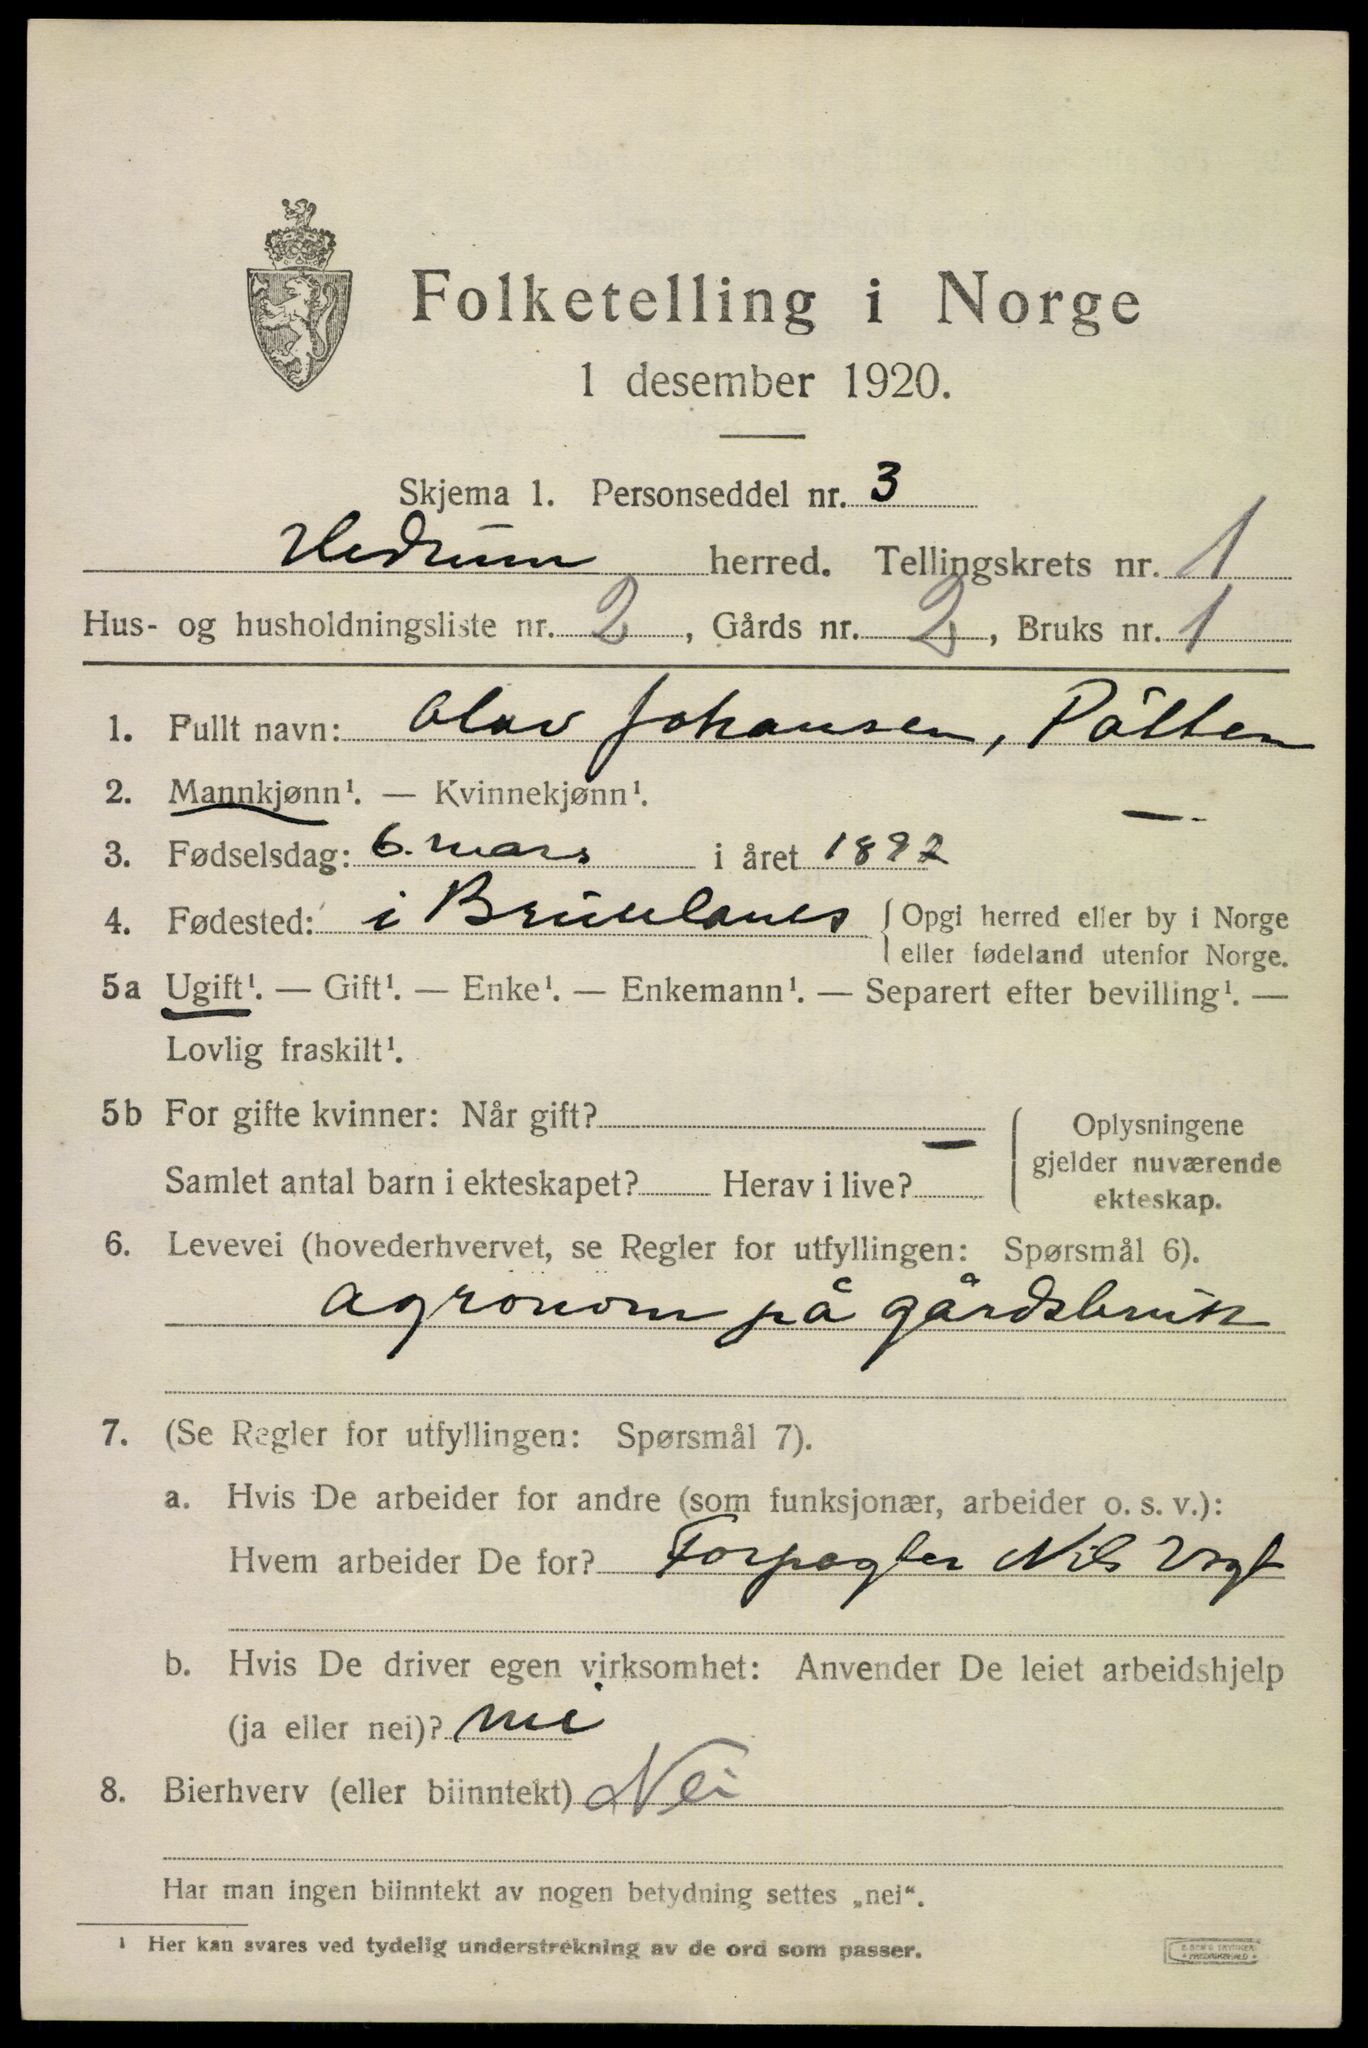 Folketelling i Norge
1 desember 1920.
Skjema 1. Personseddel nr. 3
Hedrum herred. Tellingskrets nr. 1
Hus- og husholdningsliste nr. 2, Gårds nr. 2, Bruks nr. 1
1. Fullt navn: Olav Johansen, Påtten
2. Mannkjønn¹. — Kvinnekjønn¹.
3. Fødselsdag: 6. mars i året 1892
4. Fødested: i Brunlanes { Opgi herred eller by i Norge
eller fødeland utenfor Norge.
5a Ugift¹. — Gift¹. — Enke¹. — Enkemann¹. — Separert efter bevilling¹. —
Lovlig fraskilt¹.
5b For gifte kvinner: Når gift? —
Samlet antal barn i ekteskapet? Herav i live?
Oplysningene
gjelder nuværende
ekteskap.
6. Levevei (hovederhvervet, se Regler for utfyllingen: Spørsmål 6).
agronom på gårdsbruk
7. (Se Regler for utfyllingen: Spørsmål 7).
a. Hvis De arbeider for andre (som funksjonær, arbeider o. s. v.):
Hvem arbeider De for? Forpagter Nils Vogt
b. Hvis De driver egen virksomhet: Anvender De leiet arbeidshjelp
(ja eller nei)? nei
8. Bierhverv (eller biinntekt) Nei
Har man ingen biinntekt av nogen betydning settes „nei“.
¹ Her kan svares ved tydelig understrekning av de ord som passer.